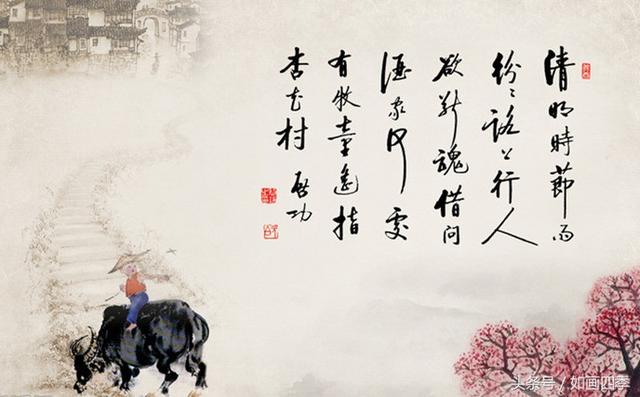 清明時節雨
紛〻路上行人
欲斷魂借問
酒家何處
有牧童遙指
杏花村 啟功
头条号 / 如画四季